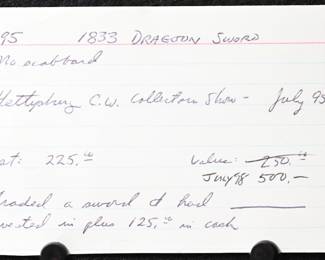 95 1833 DRAGOON SWORD
No scabbard
Gettysburg C.W. Collectors Show - July 95
st: 225.00 Value: 250.00
July 98 500.-
traded a sword I had
vested in plus 125.00 in cash